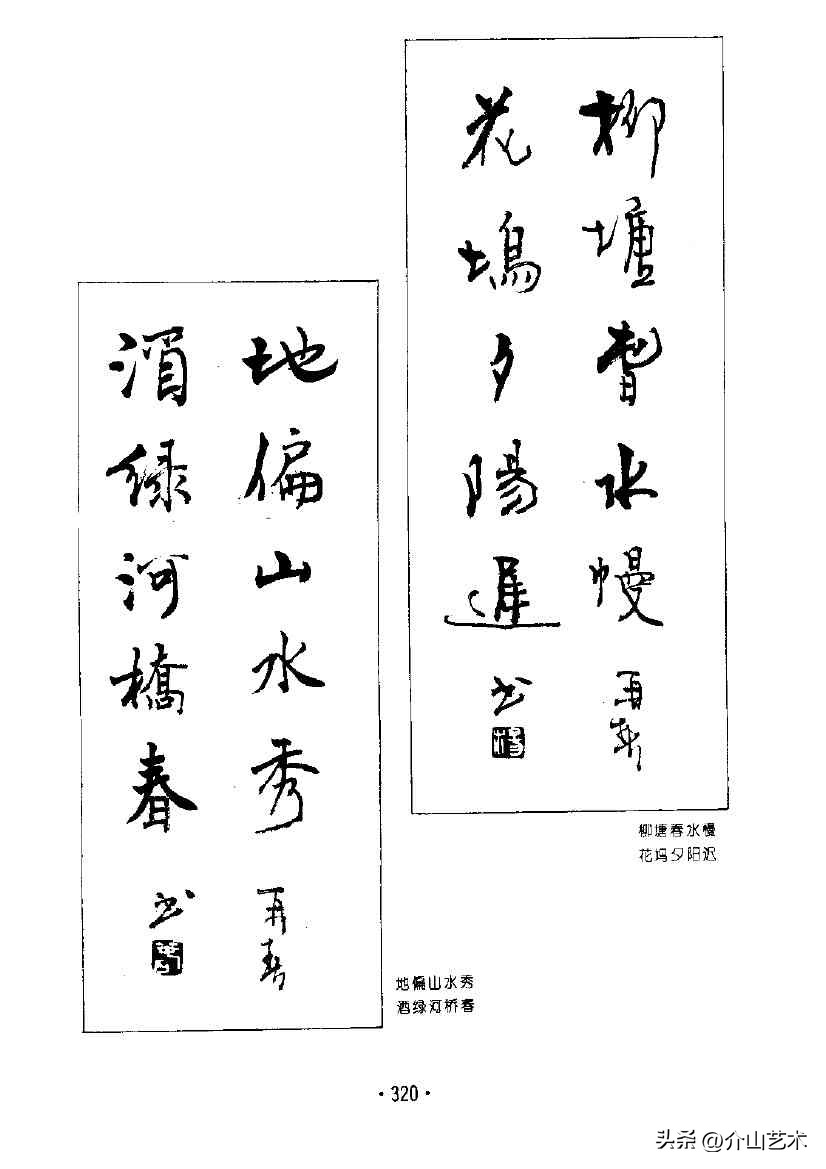 柳塘春水慢 再春
花塢夕陽遲 书
柳塘春水慢
花坞夕阳迟
地偏山水秀 再春
酒绿河橋春 书
地偏山水秀
酒绿河桥春
·320·
头条 @介山艺术